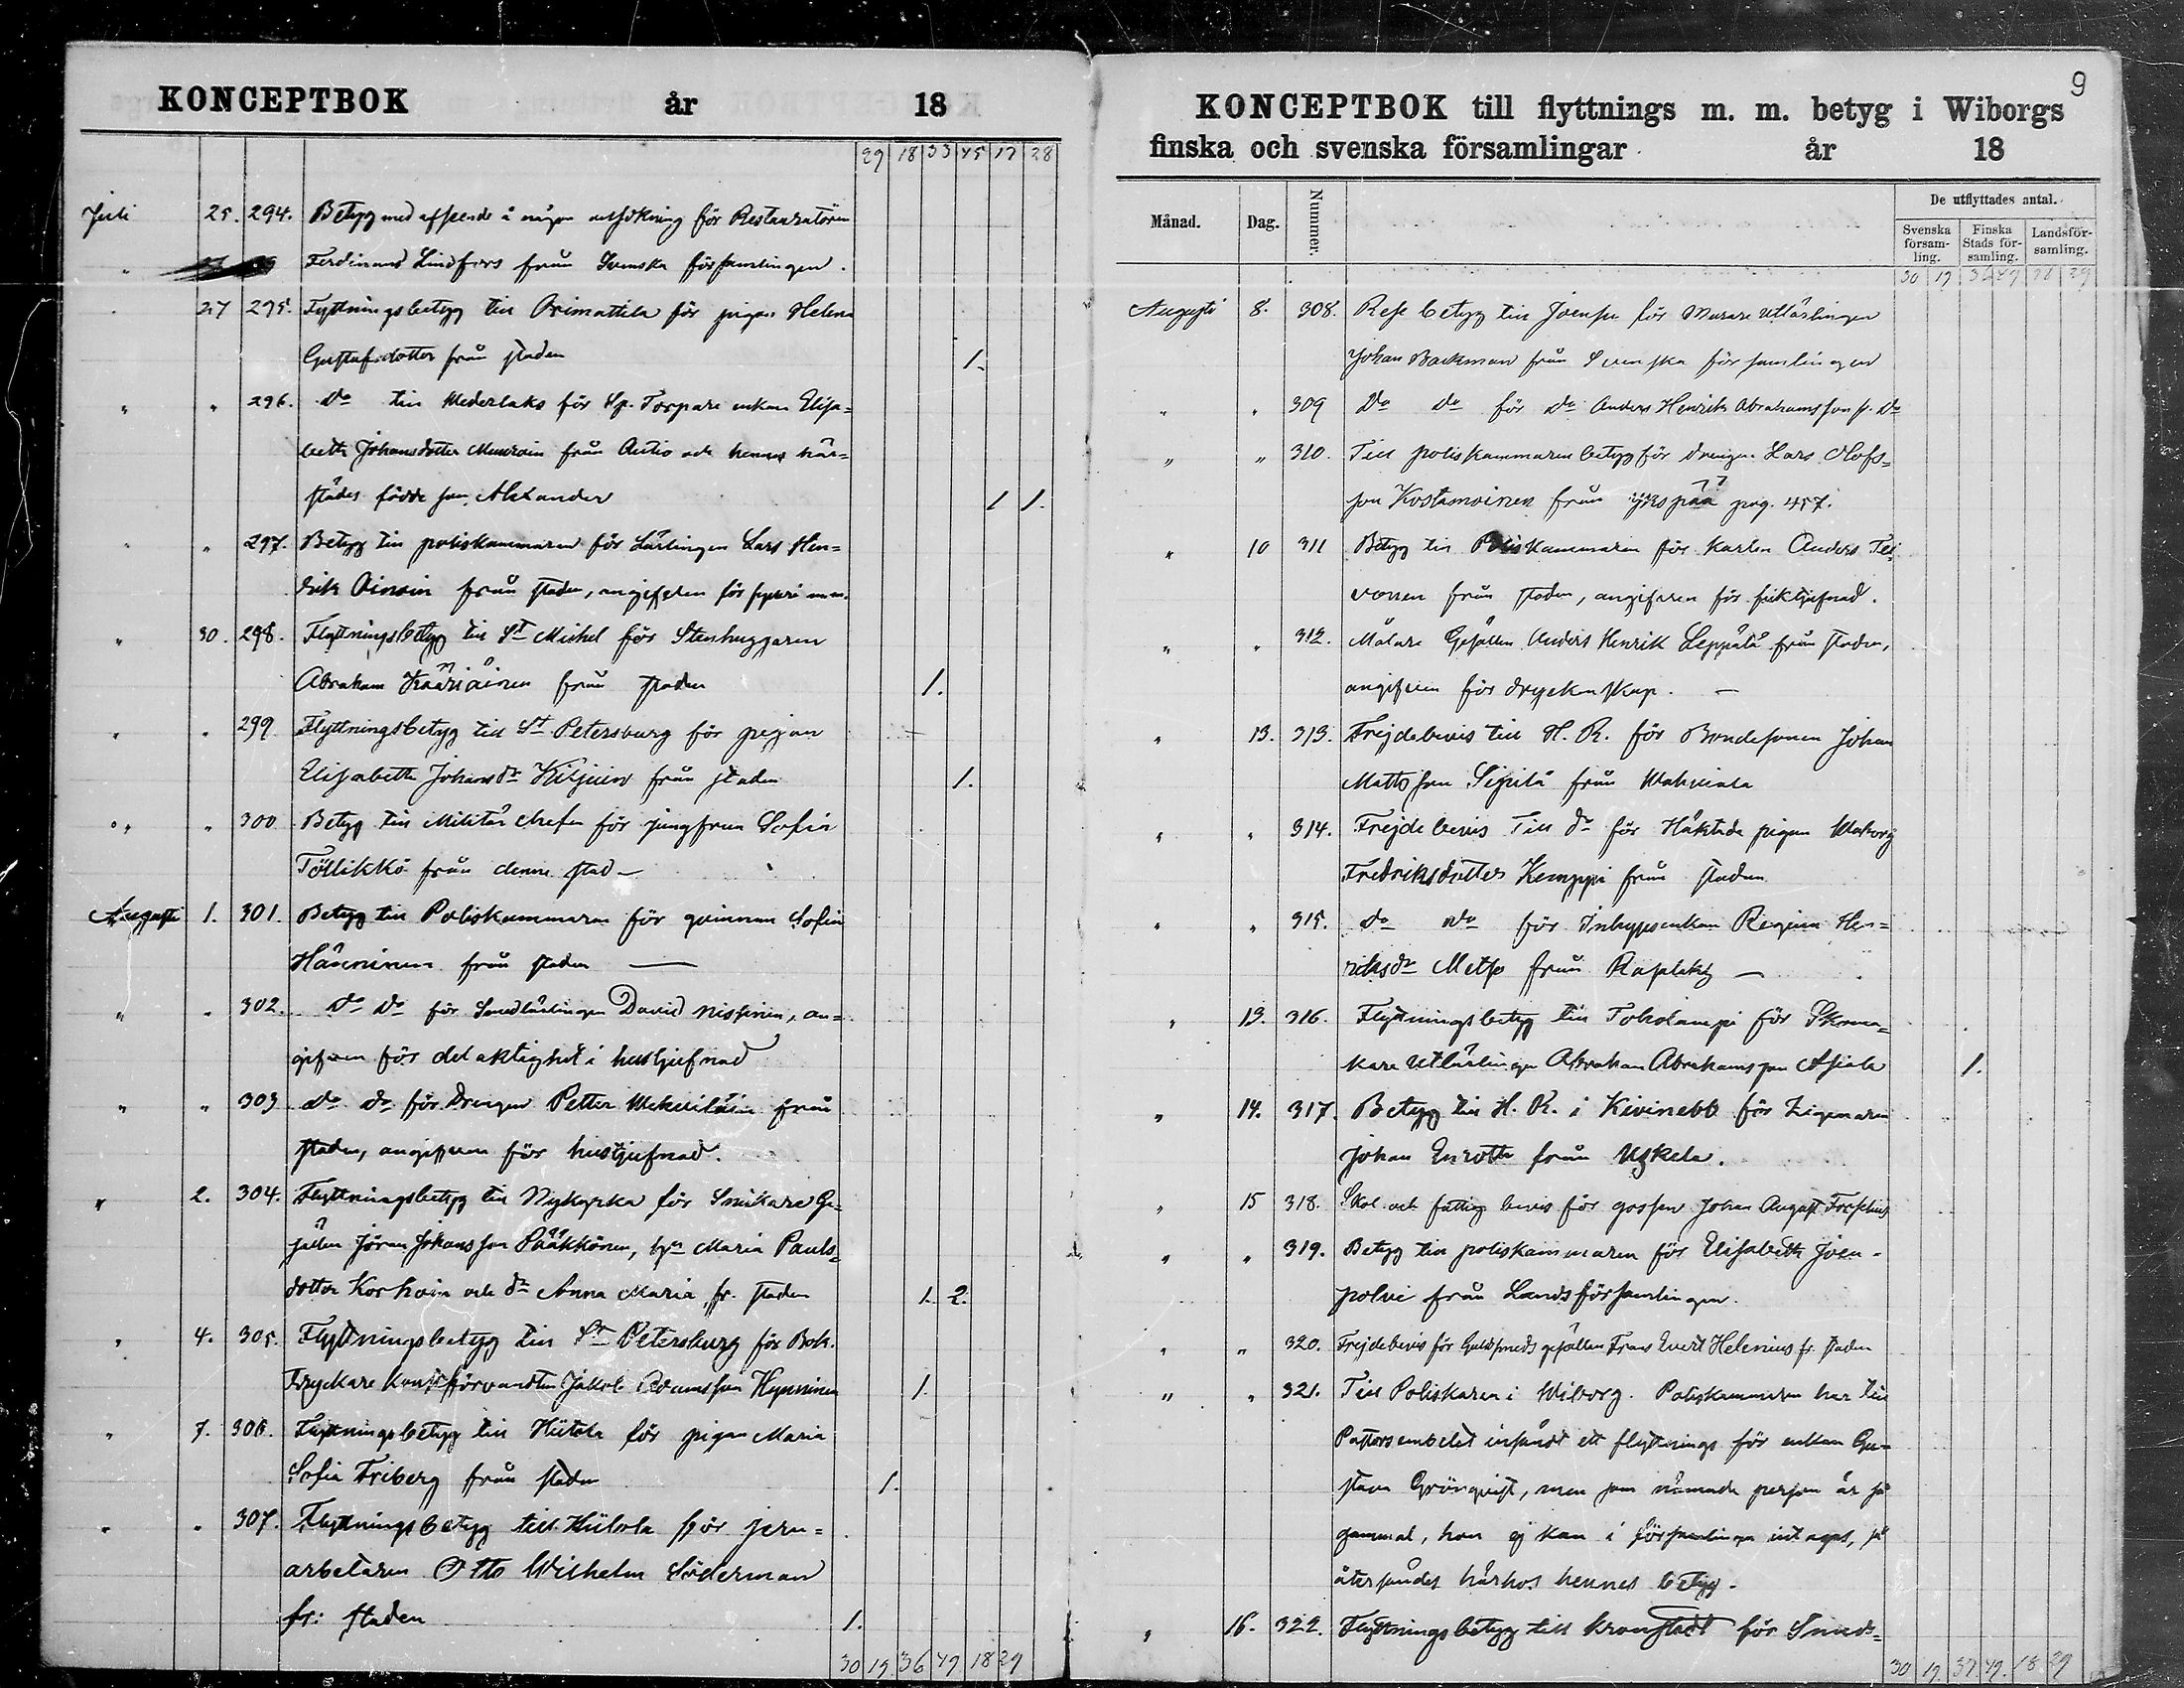 KONCEPTBOK år 18
29 18 33 45 17 28
Juli 25. 294. Betyg med afseende å någon ansökning för Restauratören
Ferdinand Lindfors från Svenska församlingen.
27 295. Flyttningsbetyg till Orimattila för pigan Helena
Gustafsdotter från staden 1.
" " 296. Do till Wederlaks för Sp. Torpare enkan Elisa=
beth Johansdotter från Autio och hennes här=
städes födde son Alexander 1 1.
" " 297. Betyg till poliskammaren för Lärlingen Lars Hen=
drik från staden, angifven för
" 30. 298. Flyttningsbetyg till St Michel för Stenhuggaren
Abraham Kääriäinen från staden 1.
" " 299 Flyttningsbetyg till St Petersburg för pigan
Elisabeth Johansdr Kiljuin från staden 1.
" " 300 Betyg till Militär chefen för jungfrun Sofia
Töllikkö från denna stad —
Augusti 1. 301. Betyg till Poliskammaren för qvinnan Sofia
Hänninen från staden —
" " 302. Do Do för Smedlärlingen David Nissinen, an=
gifven för delaktighet i hustjufnad
" " 303 Do Do för Drengen Petter från
staden, angifven för hustjufnad.
" 2. 304. Flyttningsbetyg till Nykyrka för Snickare Ge=
sällen Jöran Johansson Pääkkönen, hu Maria Pauls=
dotter Korhoin och dr Anna Maria, fr. staden 1. 2.
" 4. 305. Flyttningsbetyg till St Petersburg för Bok.
tryckare Konstförvandten Jakob Adamsson Hynninen 1.
" 7. 306. Flyttningsbetyg till Hiitola för pigan Maria
Sofia Friberg från staden 1.
" " 307. Flyttningsbetyg till Hiitola för jern=
arbetaren Otto Wilhelm Söderman
fr: staden 1.
30 19. 36 49 18 29
9
KONCEPTBOK till flyttnings m. m. betyg i Wiborgs
finska och svenska församlingar år 18
Månad. Dag. Nummer. De utflyttades antal.
Svenska försam-ling. Finska Stads för-samling. Landsför-samling.
30 19 36 49 18 29
Augusti 8. 308. Rese betyg till Joensuu för Murare Utlärlingen
Johan Backman från Svenska församlingen
" " 309 Do Do för Do Anders Henrik Abrahamsson fr. Do
" " 310. Till poliskammaren betyg för drengen Lars Olofs=
son Kostamoinen från Ykspää pag. 457.
" 10 311 Betyg till Poliskammaren för karlen Anders Ter=
vonen från staden, angifven för ficktjufnad.
" " 312. Målare Gesällen Anders Henrik Leppälä från staden,
angifven för dryckenskap. —
" 13. 313. Frejdebevis till H. R. för Bondesonen Johan
Mattsson Sipilä från
" " 314. Frejdebevis Till do för Häktade pigan Walborg
Fredriksdotter Kemppi från staden
" " 315. do do för Inhysesenkan Regina Hen=
riksdr Metso från —
" 13. 316. Flyttningsbetyg till Toholampi för Skoma=
kare Utlärlingen Abraham Abrahamsson Asiala 1.
" 14. 317. Betyg till H. R. i Kivinebb för Zigenaren
Johan Enroth från Uskela.
" 15 318. Skol och fattig bevis för gossen Johan August Forselius
" " 319. Betyg till poliskammaren för Elisabeth Joen=
polvi från Landsförsamlingen.
" " 320. Frejdebevis för Guldsmeds gesällen Frans Evert Helenius fr. staden
" " 321. Till Poliskaren i Wiborg. Poliskammaren har till
Pastorsembetet insändt ett flyttnings för enkan Gu=
stava Grönqvist, men som nämnde person är så
gammal, hon ej kan i församlingen intagas, så
återsändes härhos hennes betyg.
" 16. 322. Flyttningsbetyg till Kronstadt för Smeds=
30 19. 37. 49. 18 29